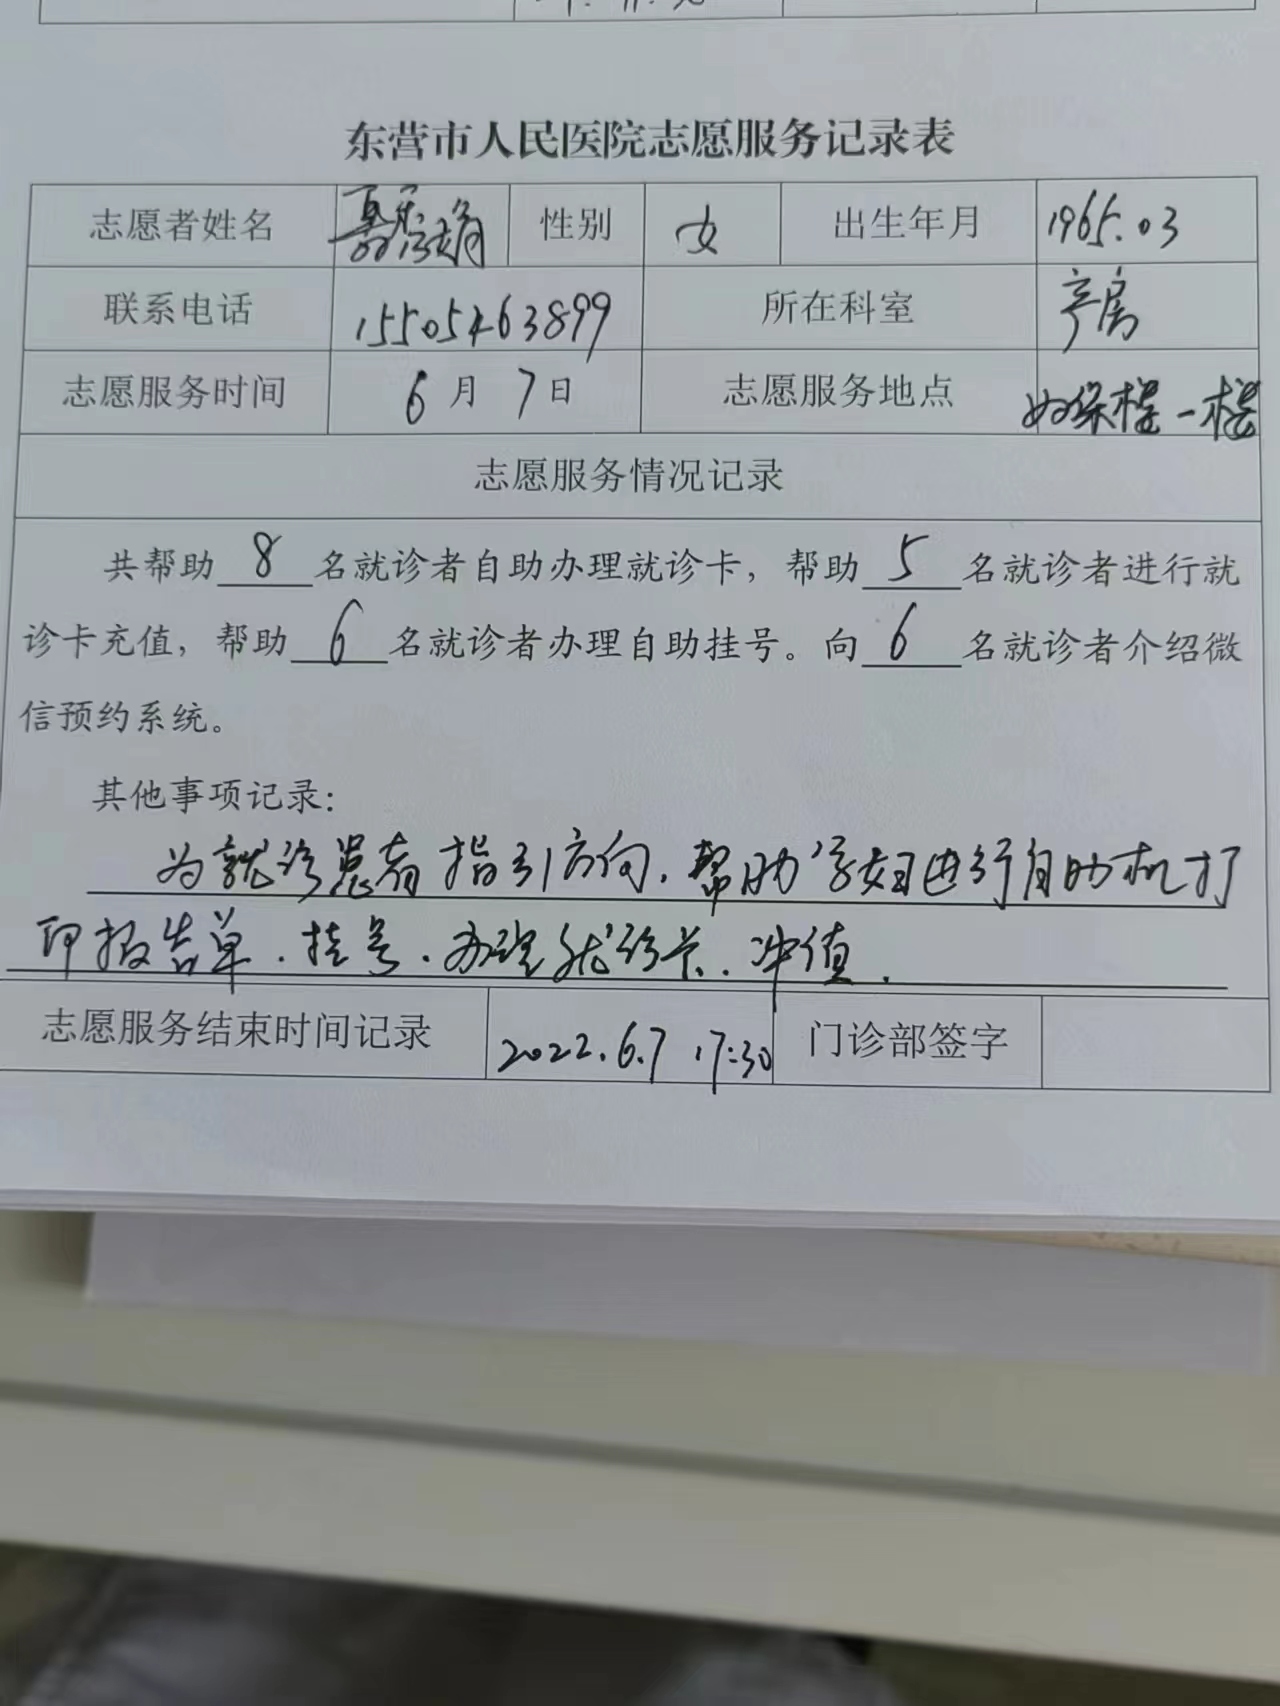 东营市人民医院志愿服务记录表
志愿者姓名 性别 女 出生年月 1965.03
联系电话 15505463899 所在科室 产房
志愿服务时间 6月7日 志愿服务地点 妇保楼一楼
志愿服务情况记录
共帮助8名就诊者自助办理就诊卡，帮助5名就诊者进行就
诊卡充值，帮助6名就诊者办理自助挂号。向6名就诊者介绍微
信预约系统。
其他事项记录：
为就诊患者指引方向，帮助孕妇进行自助机打
印报告单．挂号．办理就诊卡．冲值．
志愿服务结束时间记录 2022.6.7 17:30 门诊部签字